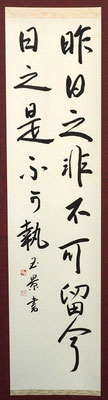 昨日之非不可留今
日之是不可執
玉景書